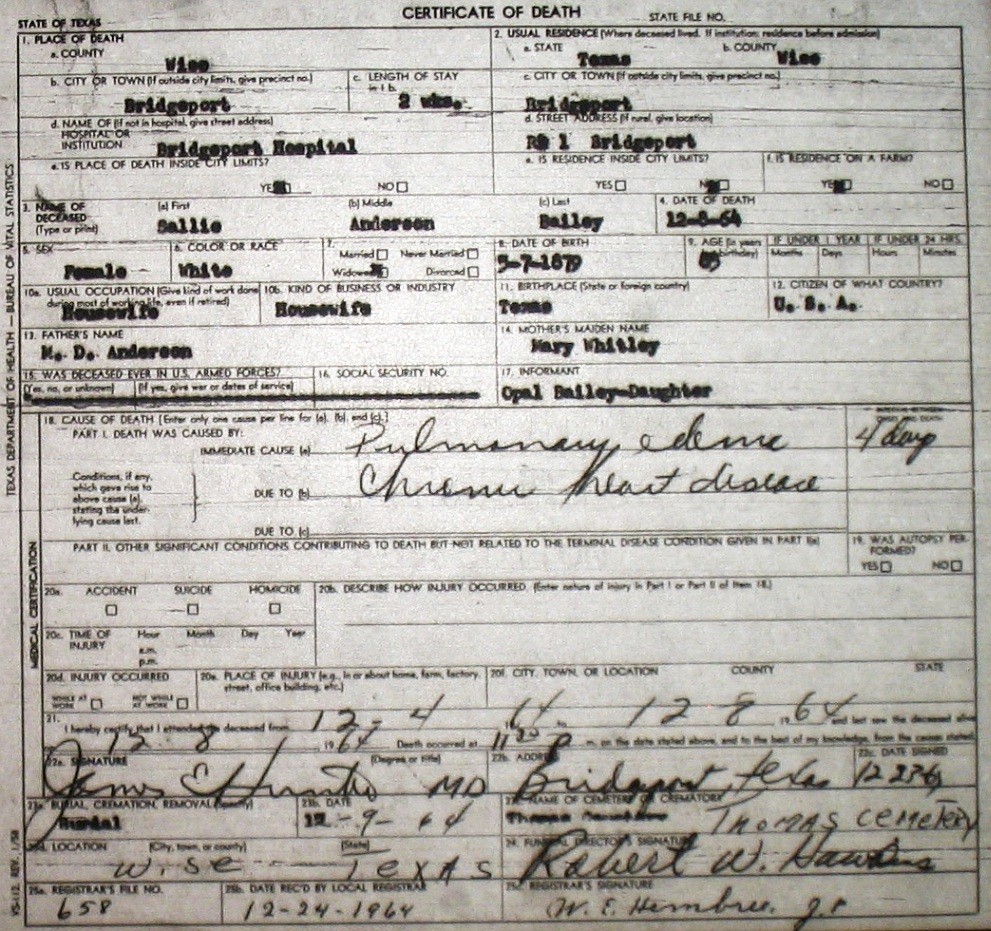 CERTIFICATE OF DEATH
STATE OF TEXAS STATE FILE NO.
1. PLACE OF DEATH
a. COUNTY
Wise
2. USUAL RESIDENCE (Where deceased lived. If institution: residence before admission)
a. STATE b. COUNTY
Texas Wise
b. CITY OR TOWN (If outside city limits, give precinct no.)
Bridgeport
c. LENGTH OF STAY
in 1 b.
2 wks.
c. CITY OR TOWN (If outside city limits, give precinct no.)
Bridgeport
d. NAME OF (If not in hospital, give street address)
HOSPITAL OR
INSTITUTION
Bridgeport Hospital
d. STREET ADDRESS (If rural, give location)
1 Bridgeport
e. IS PLACE OF DEATH INSIDE CITY LIMITS?
YES NO
e. IS RESIDENCE INSIDE CITY LIMITS?
YES NO
f. IS RESIDENCE ON A FARM?
YES NO
3. NAME OF
DECEASED
(Type or print)
(a) First (b) Middle (c) Last
Sallie Anderson Bailey
4. DATE OF DEATH
12-8-64
5. SEX
Female
6. COLOR OR RACE
White
7.
Married Never Married
Widowed Divorced
8. DATE OF BIRTH
-7-1879
9. AGE (In years
birthday)
IF UNDER 1 YEAR
Months Days
IF UNDER 24 HRS.
Hours Minutes
10a. USUAL OCCUPATION (Give kind of work done
during most of working life, even if retired)
Housewife
10b. KIND OF BUSINESS OR INDUSTRY
Housewife
11. BIRTHPLACE (State or foreign country)
Texas
12. CITIZEN OF WHAT COUNTRY?
U. S. A.
13. FATHER'S NAME
M. D. Anderson
14. MOTHER'S MAIDEN NAME
Mary Whitley
15. WAS DECEASED EVER IN U.S. ARMED FORCES?
(Yes, no, or unknown) (If yes, give war or dates of service)
16. SOCIAL SECURITY NO.
17. INFORMANT
Opal Bailey-Daughter
18. CAUSE OF DEATH [Enter only one cause per line for (a), (b), and (c).]
PART I. DEATH WAS CAUSED BY:
IMMEDIATE CAUSE (a) Pulmonary edema 4 day
Conditions, if any,
which gave rise to
above cause (a),
stating the under-
lying cause last.
DUE TO (b) Chronic heart disease
DUE TO (c)
PART II. OTHER SIGNIFICANT CONDITIONS CONTRIBUTING TO DEATH BUT NOT RELATED TO THE TERMINAL DISEASE CONDITION GIVEN IN PART I(a)
19. WAS AUTOPSY PER-
FORMED?
YES NO
20a. ACCIDENT SUICIDE HOMICIDE
20b. DESCRIBE HOW INJURY OCCURRED. (Enter nature of injury in Part I or Part II of Item 18.)
20c. TIME OF
INJURY
Hour Month Day Year
a.m.
p.m.
20d. INJURY OCCURRED
WHILE AT
WORK
NOT WHILE
AT WORK
20e. PLACE OF INJURY (e.g., in or about home, farm, factory,
street, office building, etc.)
20f. CITY, TOWN, OR LOCATION COUNTY STATE
21.
I hereby certify that I attended the deceased from 12-4 1964 to 12 8 1964 and last saw the deceased alive
12 8 1964 Death occurred at m. on the date stated above, and to the best of my knowledge, from the causes stated.
22a. SIGNATURE (Degree or title)
James Hunter MD
22b. ADDRESS
Bridgeport, Texas
22c. DATE SIGNED
23a. BURIAL, CREMATION, REMOVAL (Specify)
Burial
23b. DATE
12-9-64
23c. NAME OF CEMETERY OR CREMATORY
THOMAS CEMETERY
23d. LOCATION (City, town, or county) (State)
WISE TEXAS
24. FUNERAL DIRECTOR'S SIGNATURE
Robert W. Hawkins
25a. REGISTRAR'S FILE NO.
658
25b. DATE REC'D BY LOCAL REGISTRAR
12-24-1964
25c. REGISTRAR'S SIGNATURE
W. E. Hembree, Jr
TEXAS DEPARTMENT OF HEALTH — BUREAU OF VITAL STATISTICS
MEDICAL CERTIFICATION
VS-112 REV. 1/58